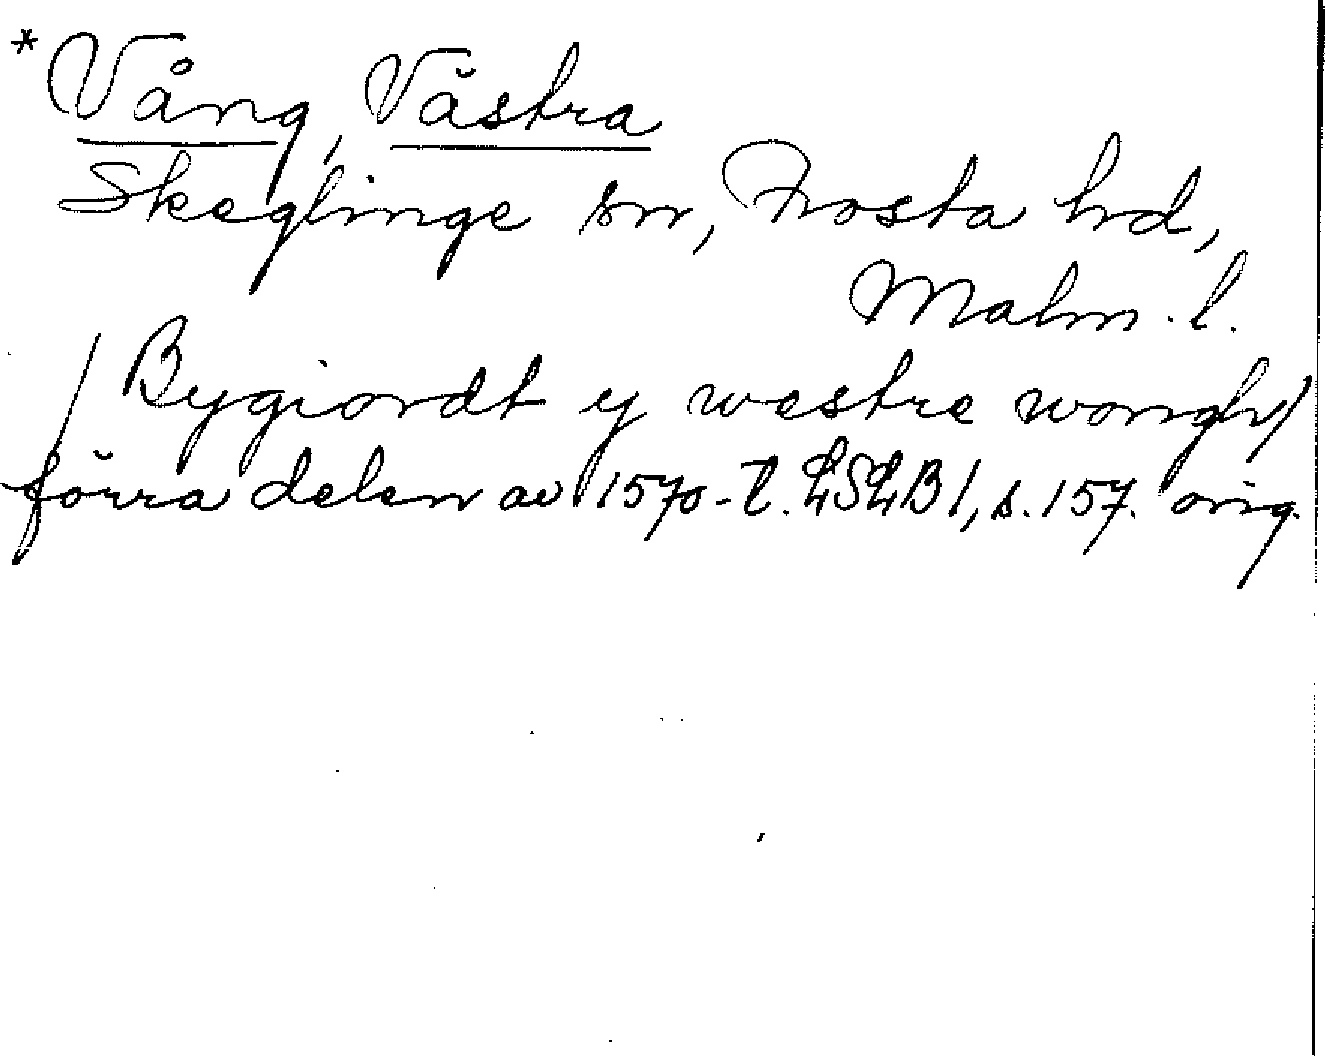 *Vång, Västra
Skeglinge sn, Frosta hd,
Malm. l.
/Bygiordt y westre wongh/
förra delen av 1570-t. LSLB 1, s. 157. orig.